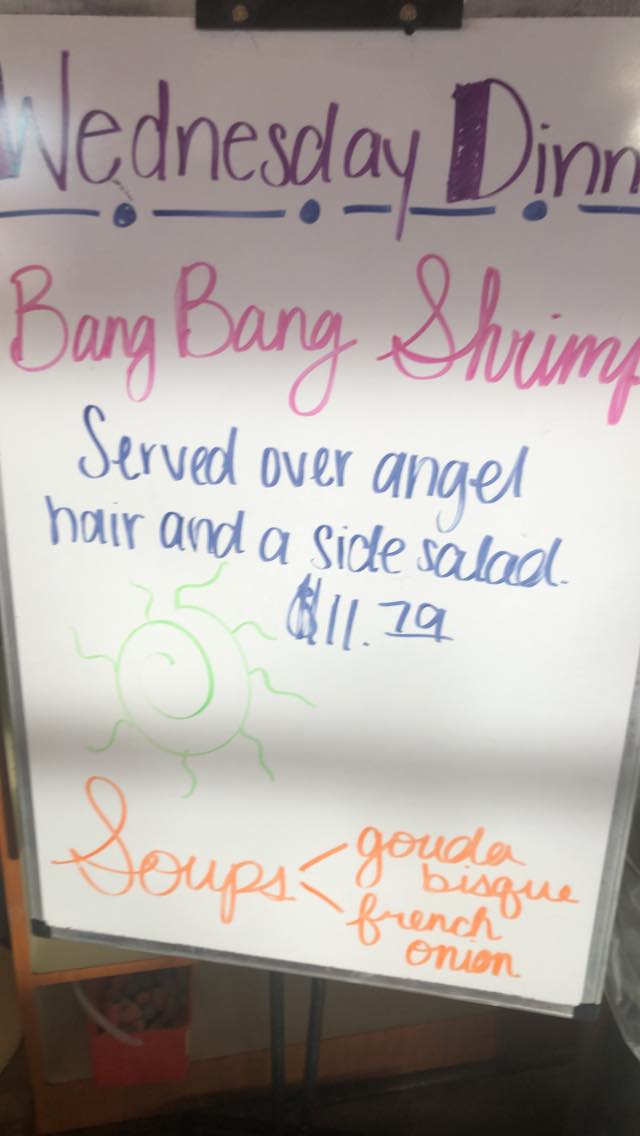 Wednesday Dinn
Bang Bang Shrimp
Served over angel
hair and a side salad.
$11.79
Soups
gouda
bisque
french
onion